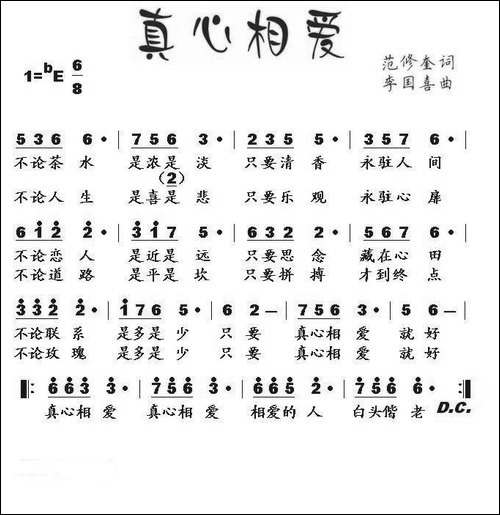 真心相爱
1=bE 6/8
范修奎词
李国喜曲
5 3 6 6· | 7 5 6 3· | 2 3 5 5· | 3 5 7 6· |
不论茶水 是浓是淡 只要清香 永驻人间
(2)
不论人生 是喜是悲 只要乐观 永驻心扉
6 i 2 2· | 3 i 7 5· | 6 3 2 2· | 5 6 7 6· |
不论恋人 是近是远 只要思念 藏在心田
不论道路 是平是坎 只要拼搏 才到终点
3 3 2 2· | i 7 6 5· | 6 2 – | 7 5 6 3· | 5 6 – |
不论联系 是多是少 只要 真心相爱 就好
不论玫瑰 是多是少 只要 真心相爱 就好
‖: 6 6 3 3· | 7 5 6 3· | 6 6 5 2· | 7 5 6 6· :‖
真心相爱 真心相爱 相爱的人 白头偕老 D.C.